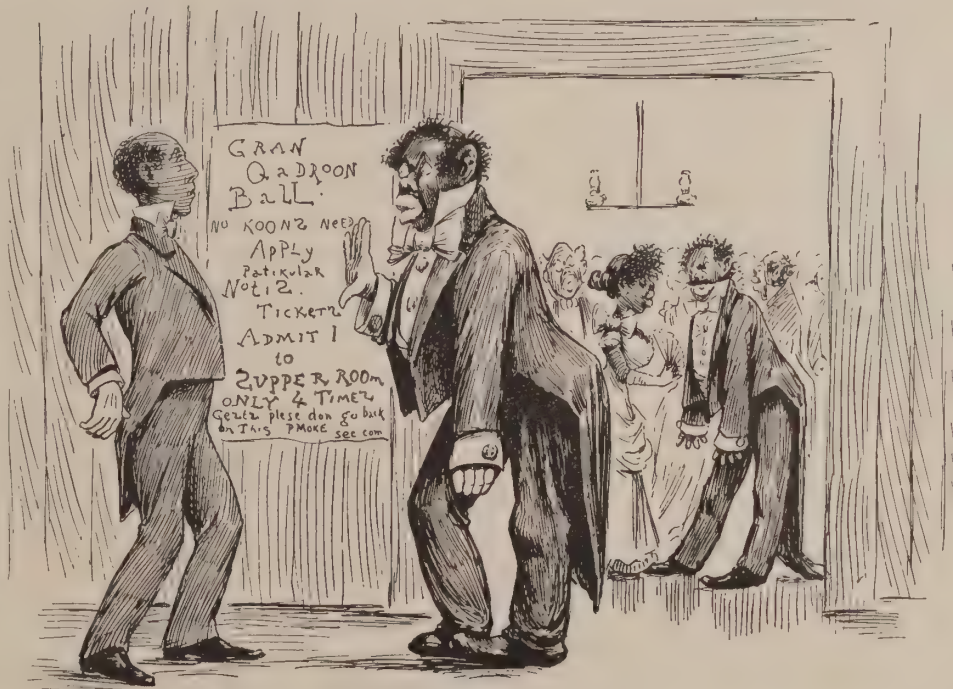 GRAN
QaDROON
BaLL.
NU KOONZ NEED
APPLY
Patikular
NotiZ.
TICKETZ
ADMIT 1
to
ZUPPER ROOM
ONLY 4 TIMEZ
Gentz plese don go back
on This PMOKE see com